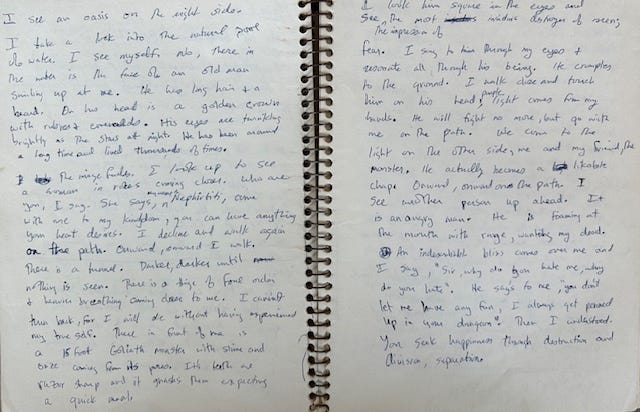 I see an oasis on the right side.
I take a look into the natural pool
of water. I see myself, no, there in
the water is the face of an old man
smiling up at me. He has long hair + a
beard. On his head is a golden crown
with rubies + emeralds. His eyes are twinkling
brightly as the stars at night. He has been around
a long time and lived thousands of times.
The image fades. I look up to see
a woman in robes coming closer. Who are
you, I say. She says, Nephirititi, come
with me to my kingdom, you can have anything
your heart desires. I decline and walk again
on the path. Onward, onward I walk.
There is a tunnel. Darker, darker until
nothing is seen. There is a tinge of foul odor
+ heavier breathing coming close to me. I cannot
turn back, for I will die without having experienced
my true self. There in front of me is
a 15 foot Goliath monster with slime and
ooze coming from its pores. Its teeth are
razor sharp and it gnashes them expecting
a quick meal.
I look him square in the eyes and
see the most insidious destroyer of beings,
the impression of
fear. I sing to him through my eyes +
resonate all through his being. He crumples
to the ground. I walk close and touch
him on his head, purple light comes from my
hands. He will fight no more, but go with
me on the path. We come to the
light on the other side, me and my friend, the
monster. He actually becomes a likable
chap. Onward, onward on the path. I
see another person up ahead. It
is an angry man. He is foaming at
the mouth with rage, wanting my blood.
An indescribable bliss comes over me and
I say, "Sir, why do you hate me, why
do you hate". He says to me, "you don't
let me have any fun, I always get penned
up in your dungeon". Then I understood.
You seek happiness through destruction and
division, separation.